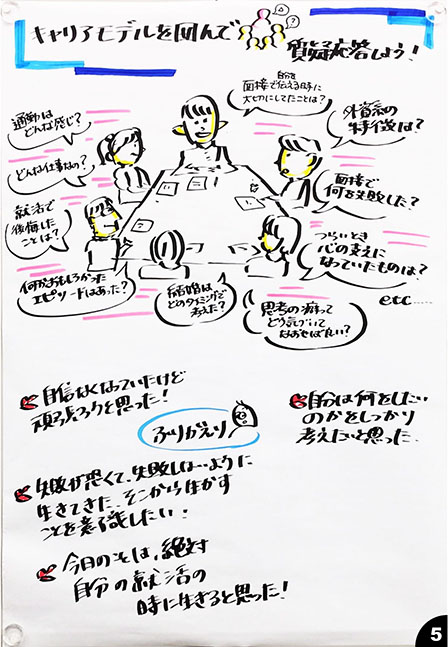 キャリアモデルを囲んで
質疑応答しよう！
自分を
面接で伝える時に
大切にしてたことは？
通勤は
どんな感じ？
外資系の
特徴は？
どんな仕事なの？
面接で
何を失敗した？
就活で
後悔した
ことは？
つらいとき
心の支えに
なっていたものは？
何かおもしろかった
エピソードはあった？
結婚は
どのタイミングで
考えた？
思考の癖って
どう気づいて
なおせば良い？
etc......
自信なくなっていたけど
頑張ろうと思った！
ふりかえり
自分は何をしたい
のかをしっかり
考えたいと思った
失敗が恐くて、失敗しないように
生きてきた。そこから生かす
ことを意識したい！
今日のことは、絶対
自分の就活の
時に生きると思った！
5